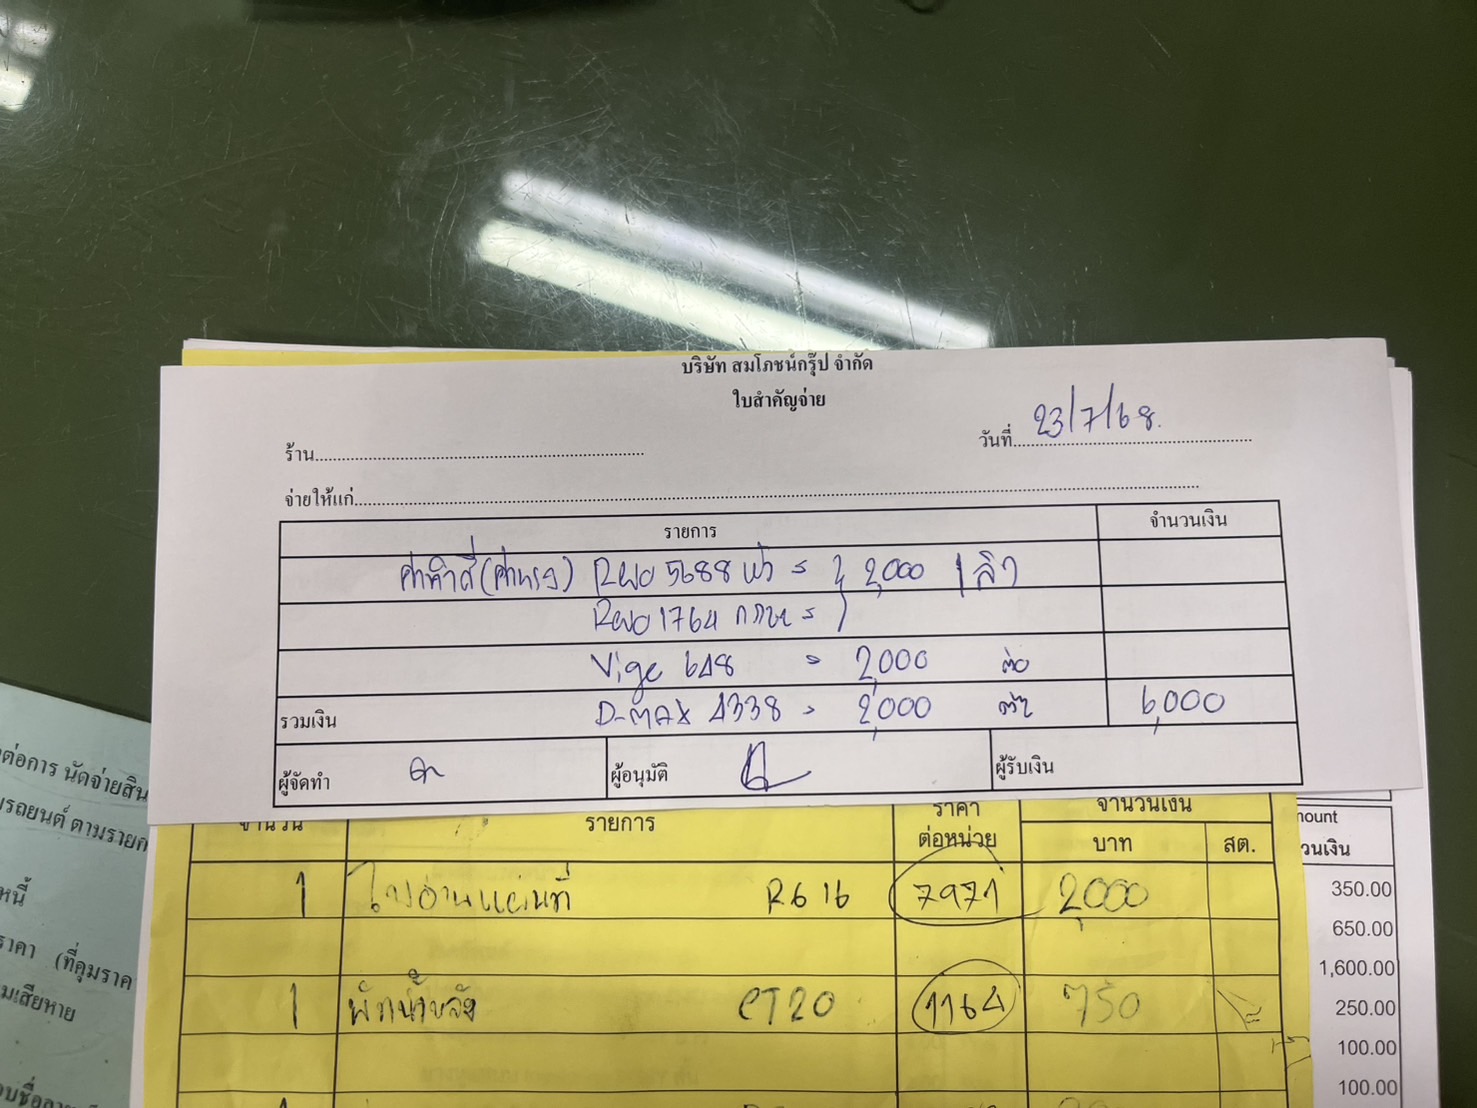 บริษัท สมโภชน์กรุ๊ป จำกัด
ใบสำคัญจ่าย
วันที่ 23/7/68.
ร้าน
จ่ายให้แก่
รายการ จำนวนเงิน
ค่าทำสี (ค่าแรง) Revo 5688 = 2,000
Revo 1764 =
Vigo 648 = 2,000 ต่อ
รวมเงิน D-MAX 4338 = 2,000 6,000
ผู้จัดทำ ผู้อนุมัติ ผู้รับเงิน
จำนวน รายการ ราคา ต่อหน่วย จำนวนเงิน
บาท สต.
1 R616 7971 2,000
1 CT20 1164 750
ต่อการ นัดจ่ายสิน
รถยนต์ ตามราย
หนี้
ราคา (ที่คุมราค
มเสียหาย
mount
วนเงิน
350.00
650.00
1,600.00
250.00
100.00
100.00